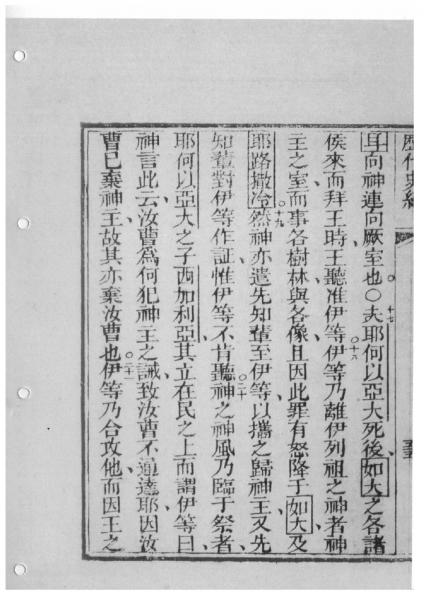 歷代史紀
耳向神連向厥室也○夫耶何以亞大死後如大之各諸
侯來而拜王時王聽准伊等伊等乃離伊列祖之神者神
主之室而事各樹林與各像且因此罪有怒降于如大及
耶路撒冷然神亦遣先知輩至伊等以攜之歸神主又先
知輩對伊等作証惟伊等不肯聽神之神風乃臨于祭者
耶何以亞大之子西加利亞其立在民之上而謂伊等曰
神言此云汝曹為何犯神主之誡致汝曹不通達耶因汝
曹已棄神主故其亦棄汝曹也伊等乃台攻他而因王之
十七
十八
十九
二十
二十一